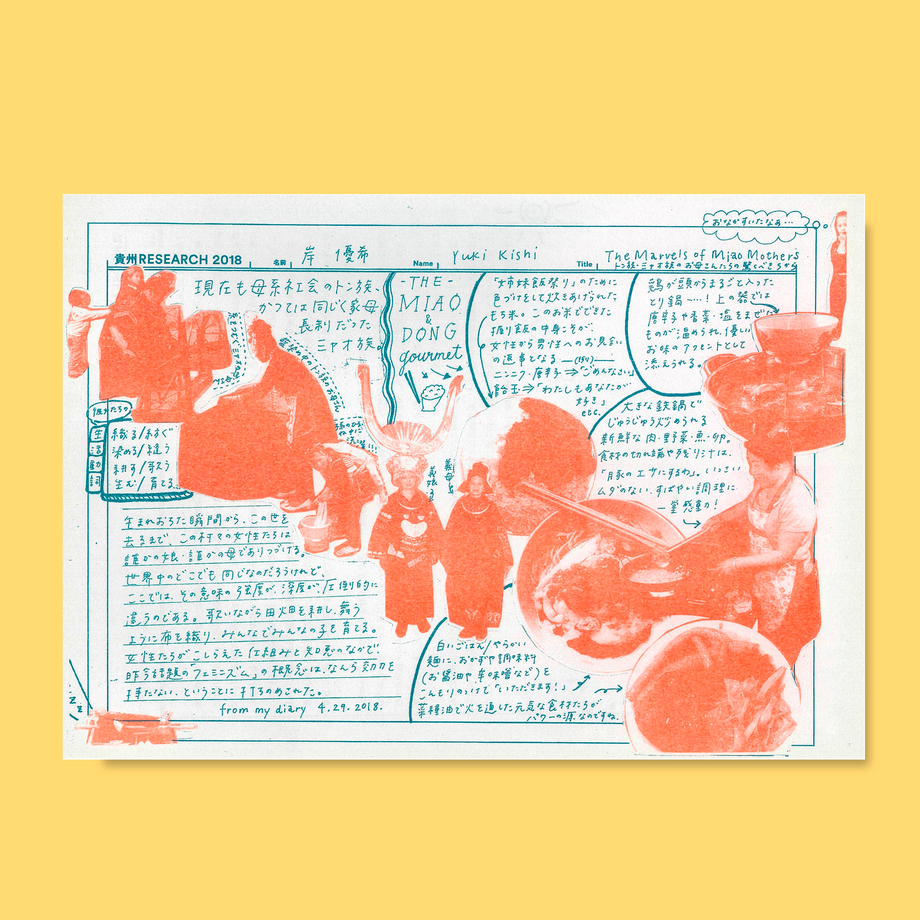 おなかすいたなぁ…
貴州RESEARCH 2018
名前
岸 優希
Name
Yuki Kishi
Title
The Marvels of Miao Mothers
トン族・ミャオ族のお母さんたちの驚くべきちから
現在も母系社会のトン族、
かつては同じく家母
長制だった
ミャオ族。
-THE-
MIAO
&
DONG
gourmet
「姉妹飯祭り」のために
色づけをして炊きあげられた
もち米。このお米でできた
握り飯の中身こそが、
女性から男性へのお見合い
の返事となる
ニンニク・唐辛子⇒「ごめんなさい」
飴玉⇒「わたしもあなたが
好き」
etc.
鶏が頭からまるごと入った
とり鍋…! 上の器では
唐辛子や香菜・塩をまぜた
ものが温められ、優しい
お味のアクセントとして
添えられる。
大きな鉄鍋で
じゅうじゅう炒められる
新鮮な肉・野菜・魚・卵。
食材の切れ端や残り汁は、
「豚のエサにするわ」。いっさい
ムダのない、すばやい調理に
一堂感動!
彼女たちの
生活動詞
織る/紡ぐ
染める/縫う
耕す/歌う
生む/育てる
義娘
義母
生まれおちた瞬間から、この世を
去るまで、この村々の女性たちは
誰かの娘・誰かの母でありつづける。
世界中のどこでも同じなのだろうけれど、
ここでは、その意味の強度が、深度が、圧倒的に
違うのである。歌いながら田畑を耕し、舞う
ように布を織り、みんなでみんなの子を育てる。
女性たちがこしらえた仕組みと知恵のなかで、
昨今話題の「フェミニズム」の概念は、なんら効力を
持たない、ということに打ちのめされた。
from my diary 4.29.2018.
白いごはん/やらかい
麺に、おかずや調味料
(お醤油や辛味噌など)を
こんもりのっけて「いただきます!」
菜種油で火を通した元気な食材たちが
パワーの源なのですね。